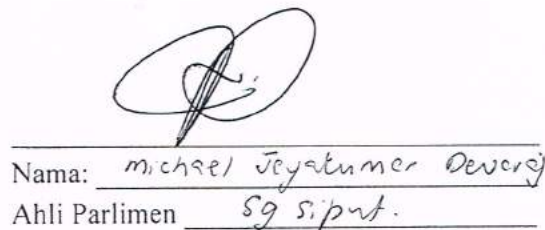 Nama: Michael Jeyakumar Devaraj
Ahli Parlimen Sg Siput.